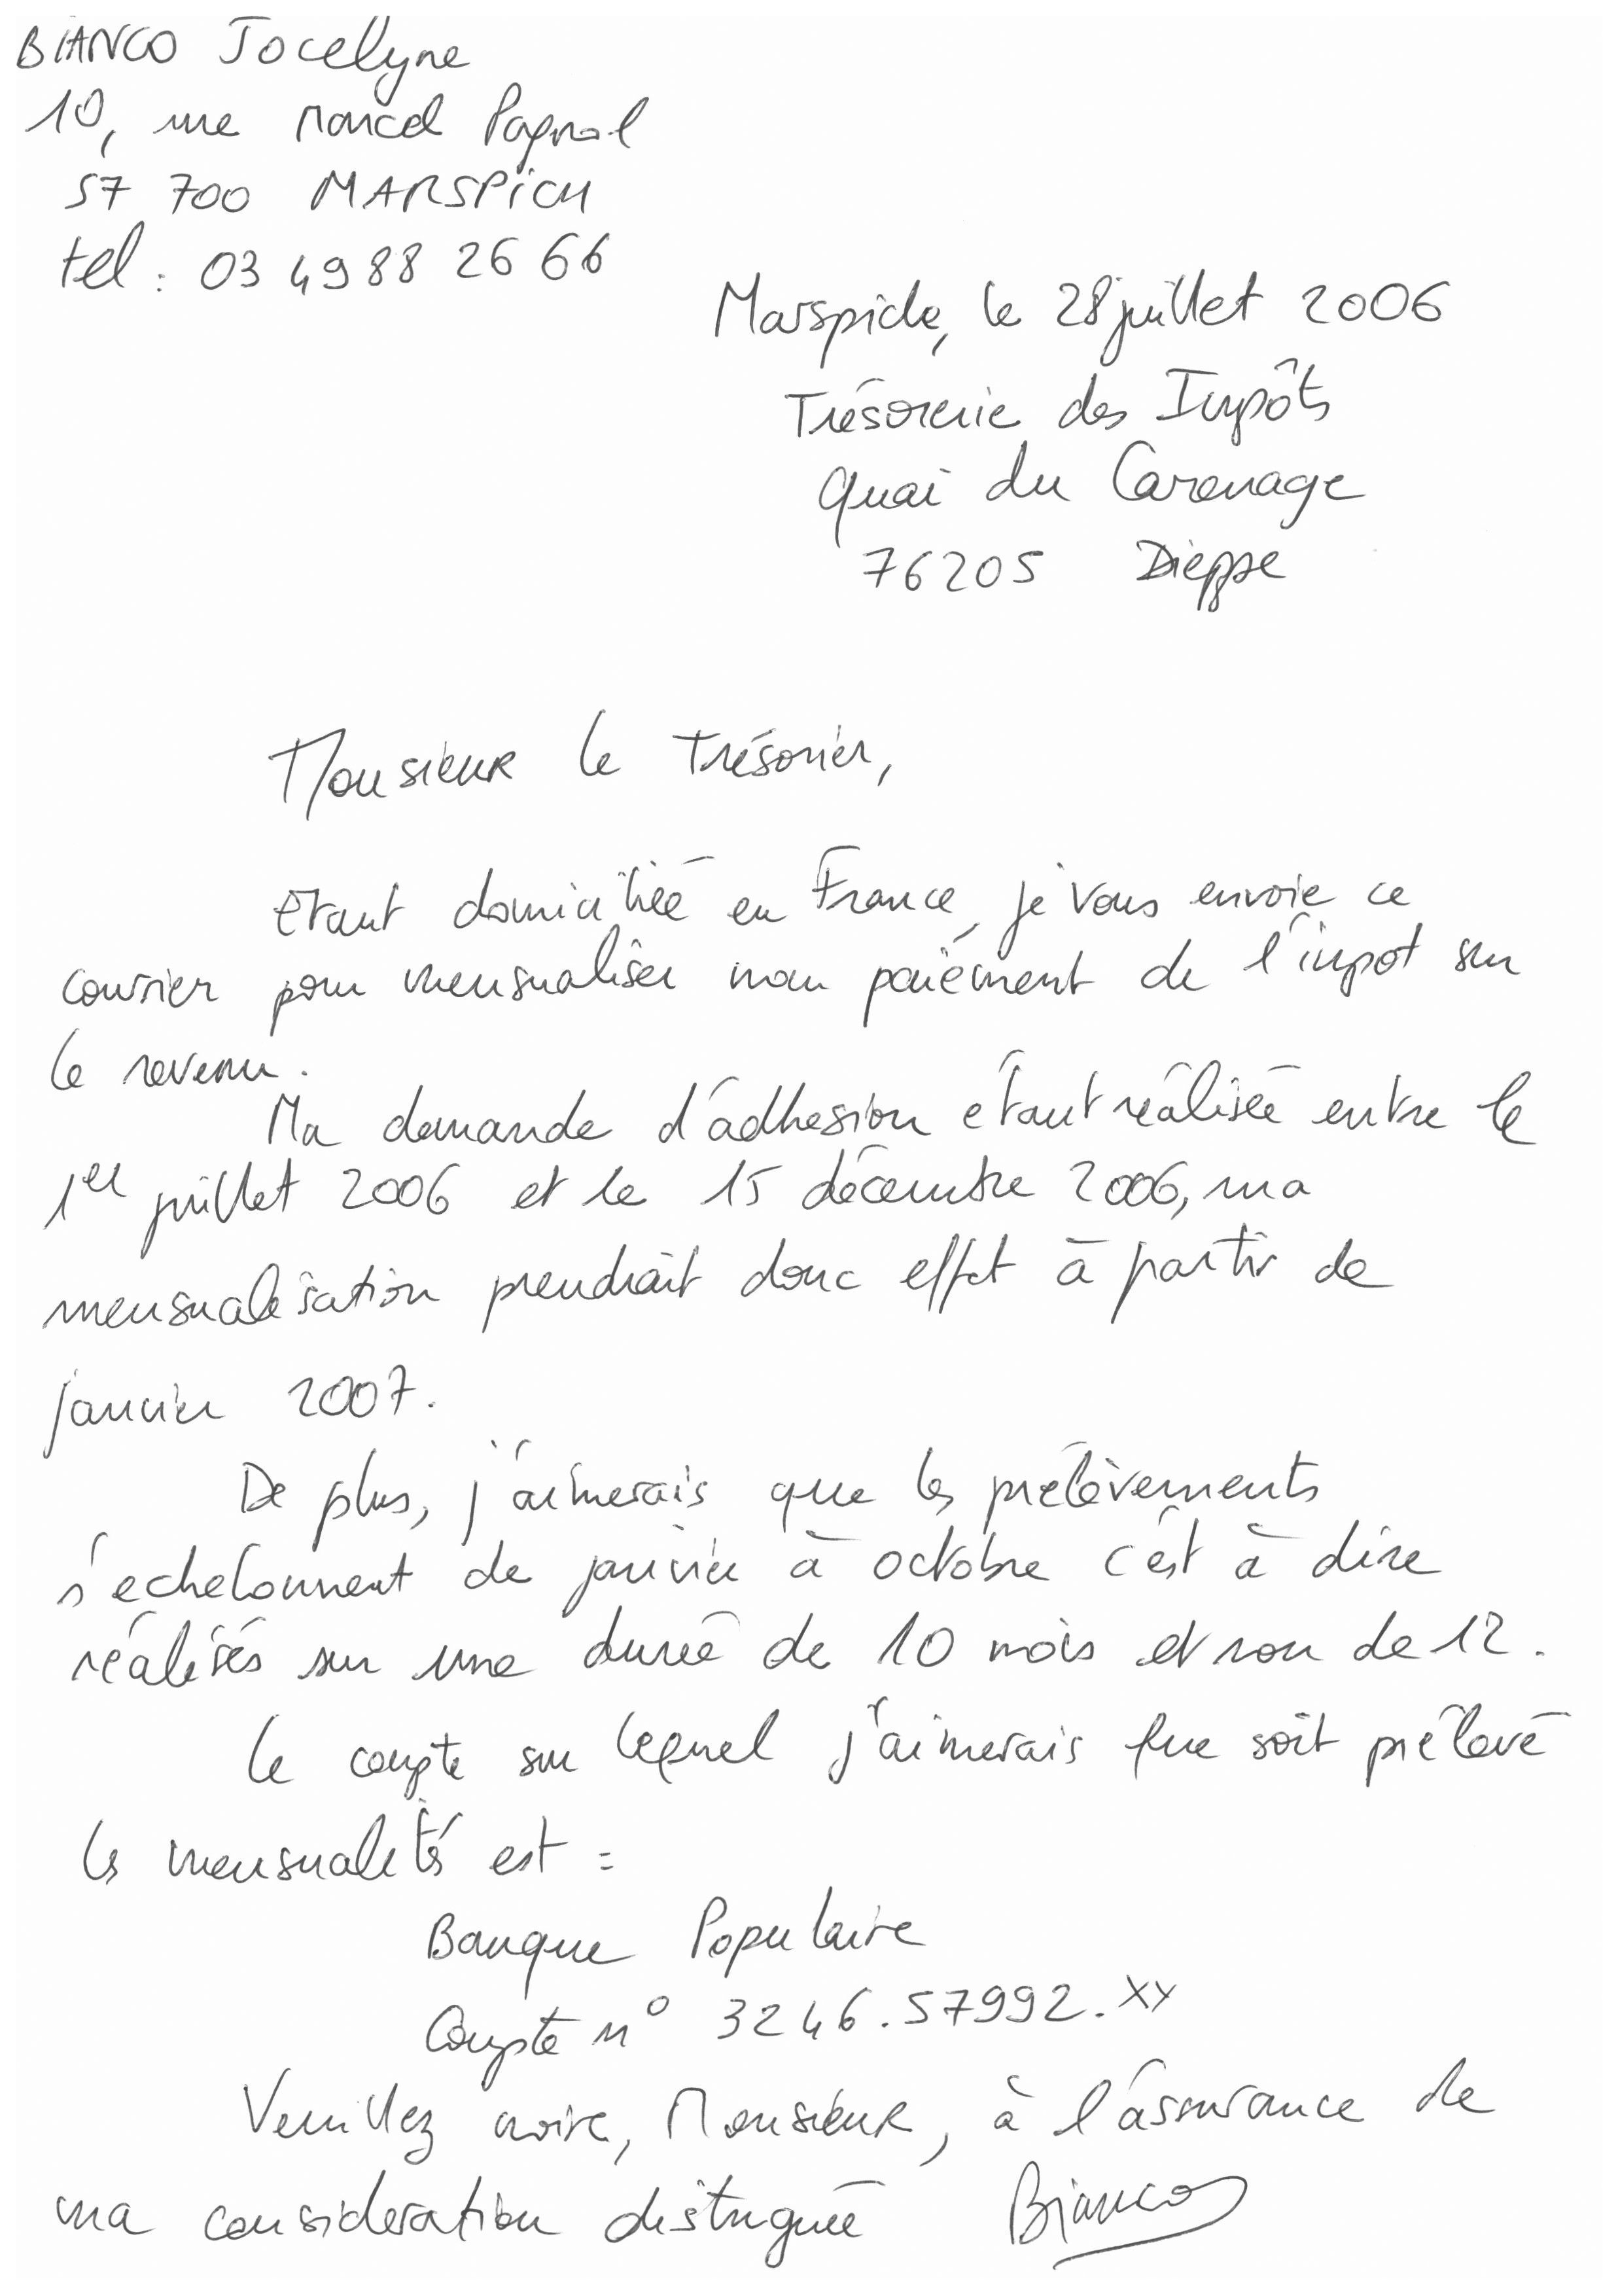 BIANCO Jocelyne
10, rue Marcel Pagnol
57 700 MARSPICH
tel : 03 49 88 26 66
Marspich, le 28 juillet 2006
Trésorerie des Impôts
Quai du Carenage
76205 Dieppe
Monsieur le Trésorier,
Etant domiciliée en France, je vous envoie ce
courrier pour mensualiser mon paiement de l'impot sur
le revenu.
Ma demande d'adhésion étant réalisée entre le
1er juillet 2006 et le 15 décembre 2006, ma
mensualisation prendrait donc effet à partir de
janvier 2007.
De plus, j'aimerais que les prélèvements
s'echelonnent de janvier à octobre c'est à dire
réalisés sur une durée de 10 mois et non de 12.
Le compte sur lequel j'aimerais que soit prélevé
les mensualités est :
Banque Populaire
Compte n° 3246.57992.XY
Veuillez croire, Monsieur, à l'assurance de
ma consideration distinguée Bianco